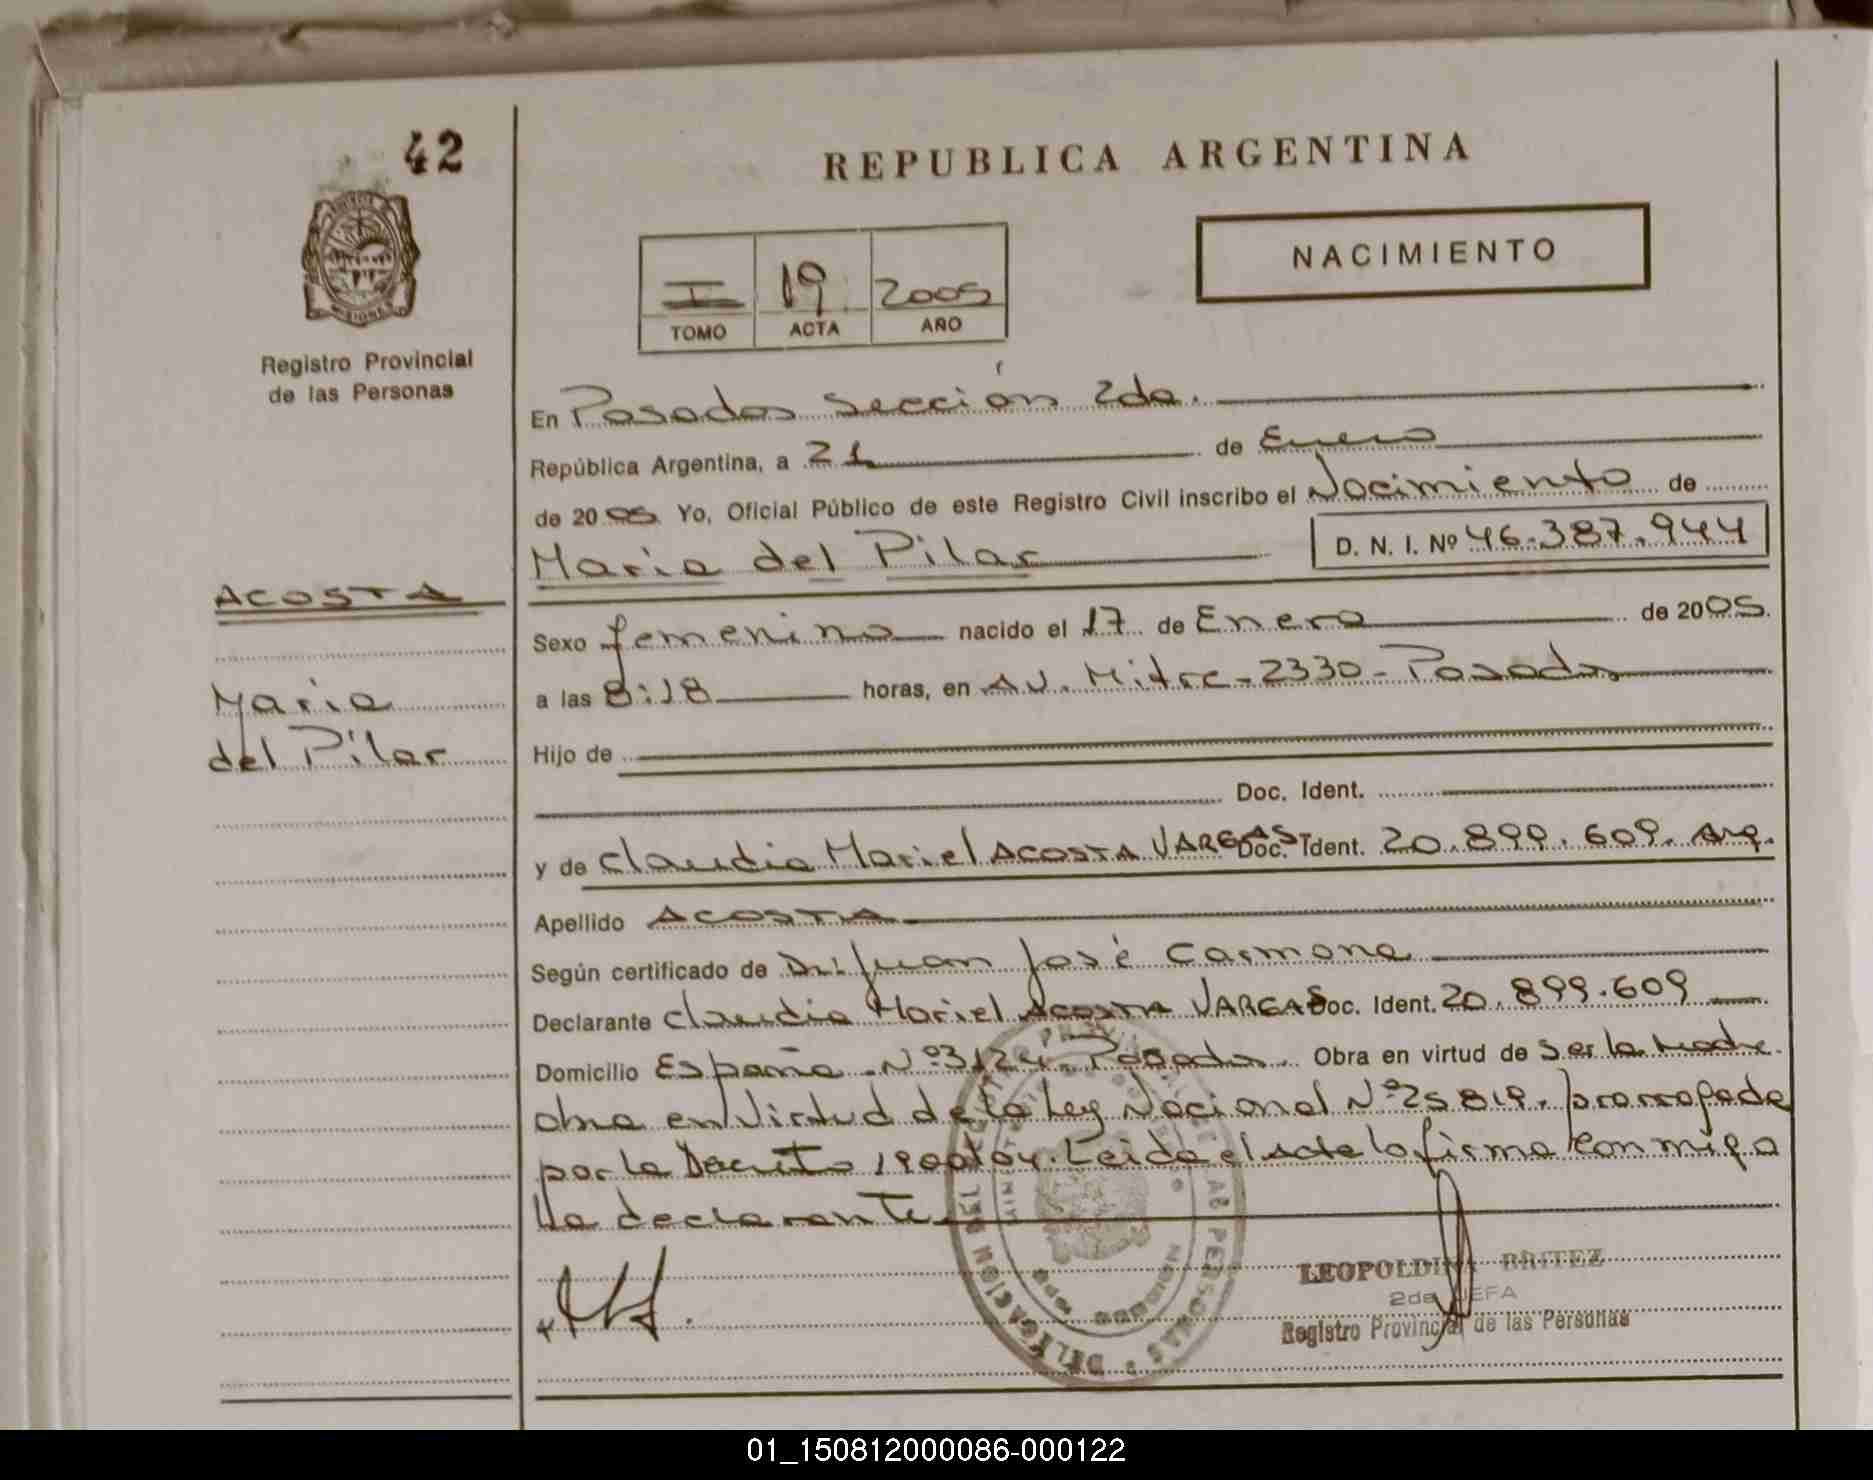 42
REPUBLICA ARGENTINA
NACIMIENTO
I 19 2005
TOMO ACTA AÑO
Registro Provincial
de las Personas
En Posadas Sección 2da.
República Argentina, a 21 de Enero
de 2005 Yo, Oficial Público de este Registro Civil inscribo el Nacimiento de
Maria del Pilar D. N. I. Nº 46.387.944
ACOSTA
Maria
del Pilar
Sexo femenino nacido el 17 de Enero de 2005.
a las 8:18 horas, en AV. Mitre - 2330 - Posadas
Hijo de
Doc. Ident.
y de Claudia Mariel ACOSTA VARGAS Doc. Ident. 20.899.609. Arg.
Apellido ACOSTA
Según certificado de Dr: Juan José Carmona
Declarante Claudia Mariel ACOSTA VARGAS Doc. Ident. 20.899.609
Domicilio España Nº 3124. Posadas. Obra en virtud de Ser la Madre.
obra en Virtud de la Ley Nacional Nº 25819. prorrogada
por la Decreto 1900/04. Leida el acta lo firma conmigo
la declarante
LEOPOLDINA BRITEZ
2da JEFA
Registro Provincial de las Personas
01_150812000086-000122